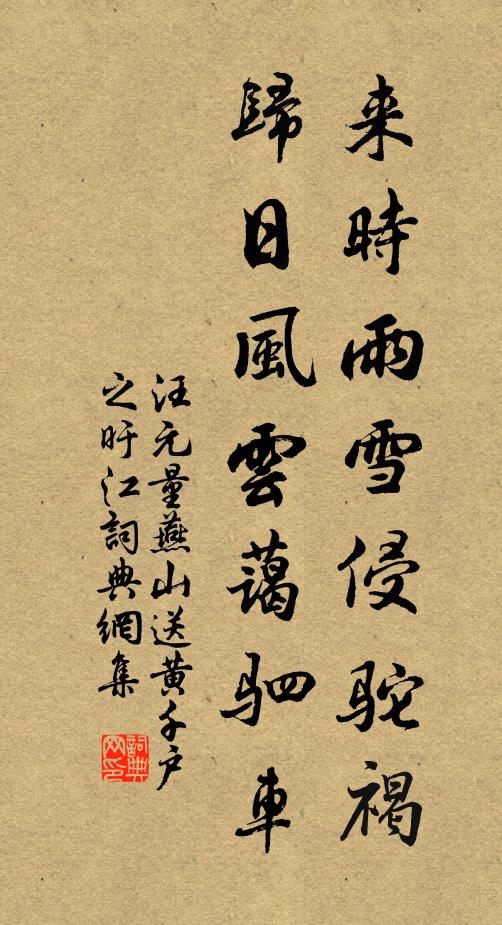 来時雨雪侵駝褐
歸日風雲藹駟車
汪元量燕山送黄千户
之盱江詞典網集
詞典网印